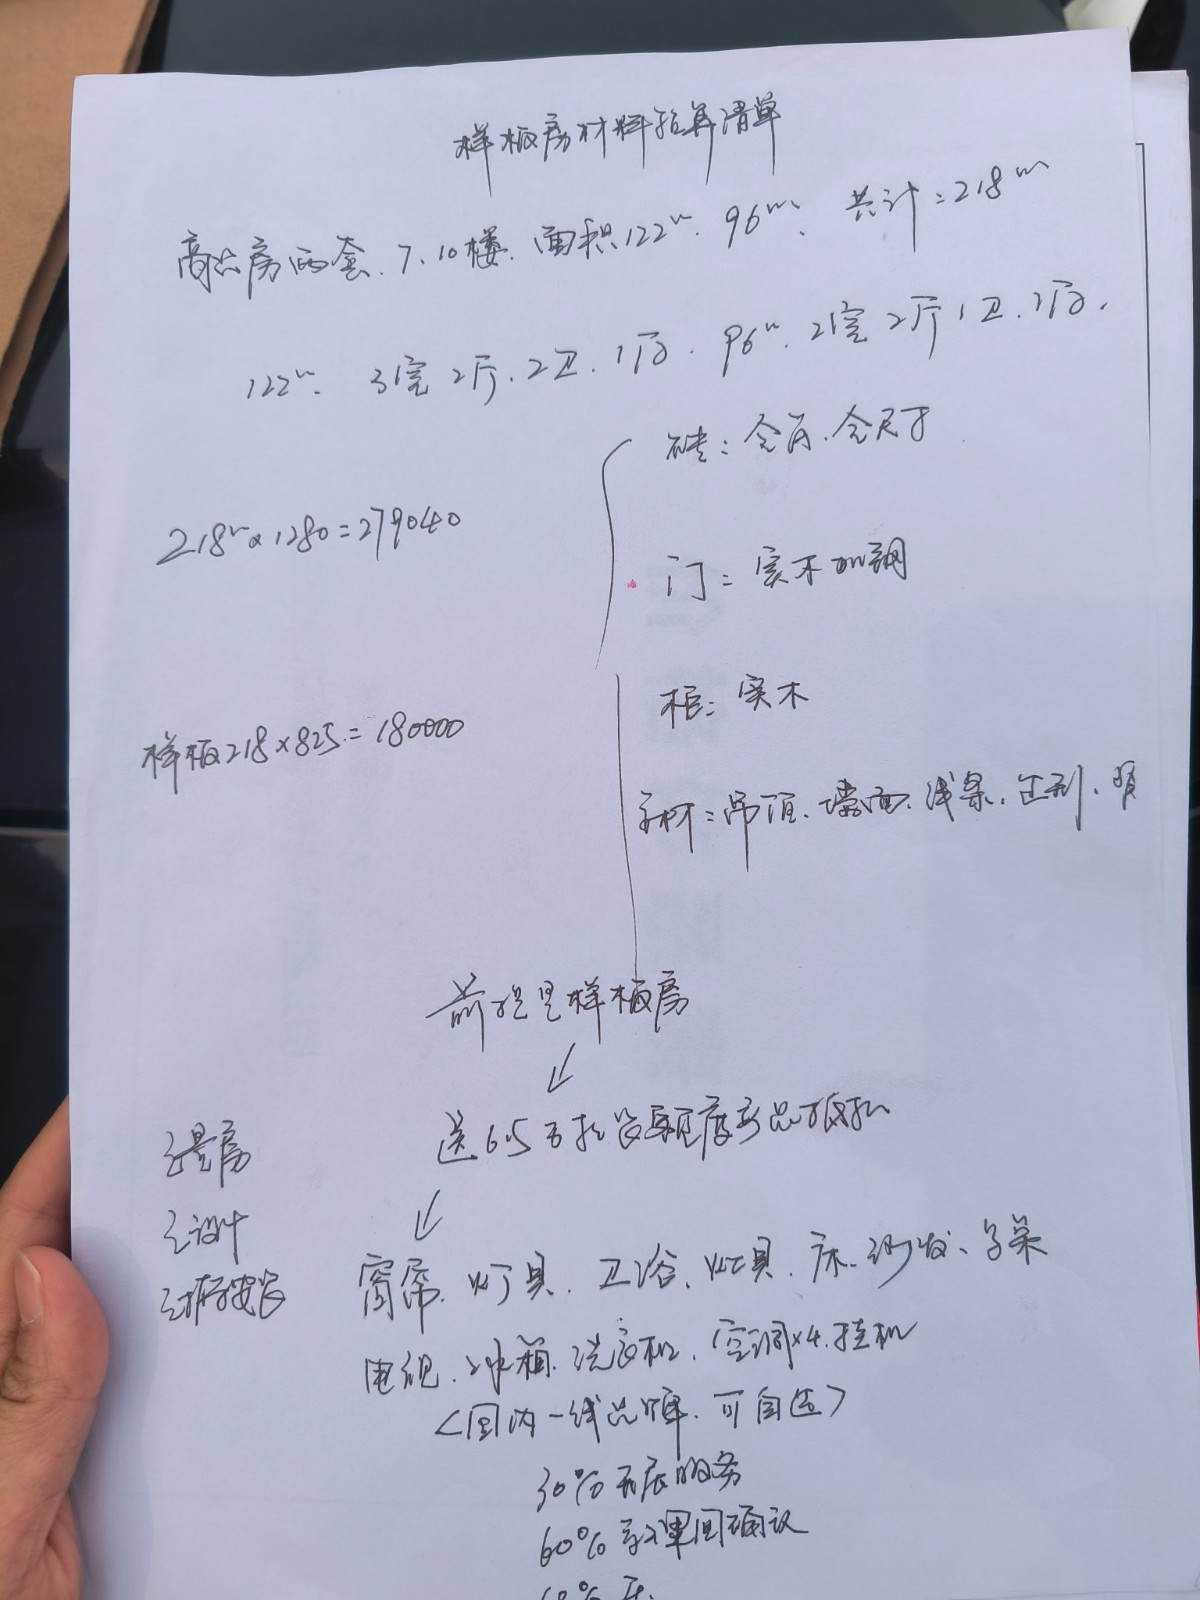 样板房材料预算清单
高层房两套、7、10楼、面积122㎡、96㎡、共计:218㎡
122㎡、3室2厅、2卫、1厨、96㎡、2室2厅1卫、1厨、
砖:全屋、全尺寸
218㎡×1280=279040
门:实木加钢
柜:实木
样板218×825=180000
辅材:吊顶、墙面、线条、造型、
前提是样板房
↓
送6.5万软装额度产品抵扣
量房
设计
安装
↓
窗帘、灯具、卫浴、灶具、床、沙发、
电视、冰箱、洗衣机、空调×4、挂机
<国内一线品牌、可自选>
30%开展服务
60%
10%